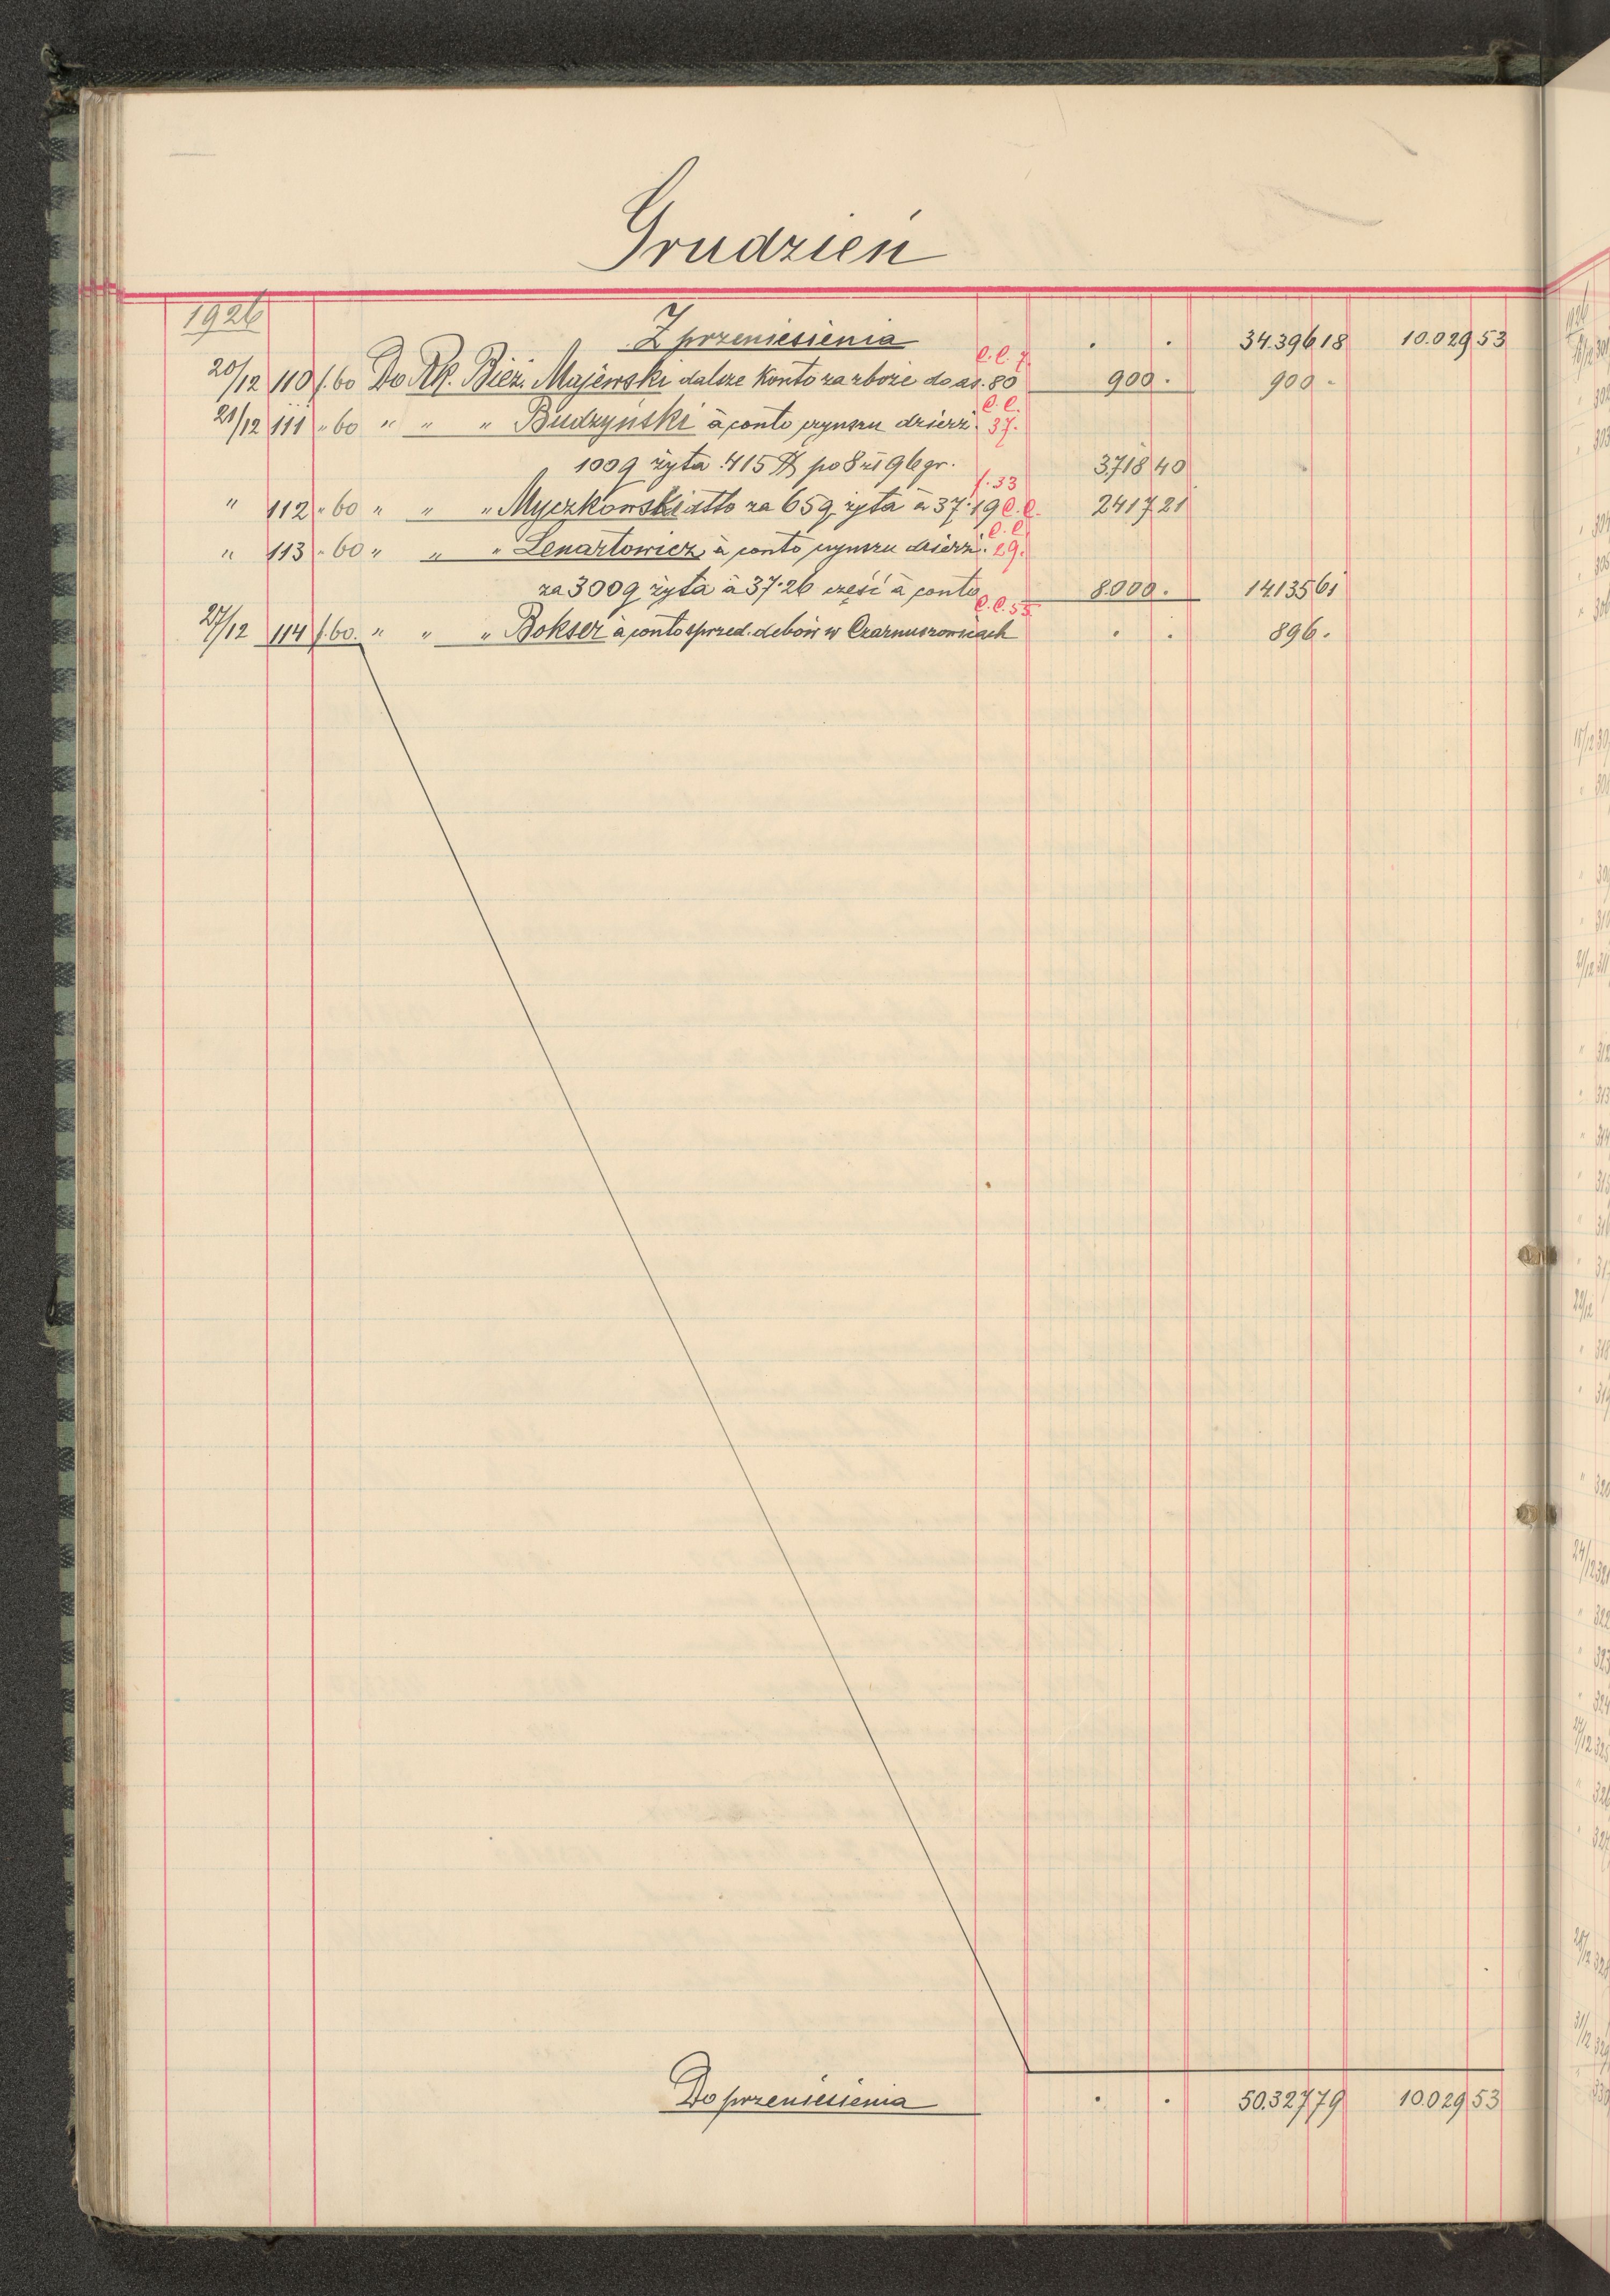 Grudzień
1926
Z przeniesienia . . 34.396 18 10.029 53
C.C. 7.
20/12 110 f. 60 Do Rk. Bież. Majewski dalsze konto za zboże do as. 80 900 . 900 -
C.C.
21/12 111 " 60 " " " Budzyński à conto czynszu dzierż. 37.
100 q żyta 415 po 8 zł 96 gr. 3.718 40
f. 33
" 112 " 60 " " " Myczkowski atto za 65 q żyta à 37.19 C.C. 2417 21
C.C.
" 113 " 60 " " " Lenartowicz à conto czynszu dzierż. 29.
za 300 q żyta à 37.26 część à conto 8.000 . 14.135 61
C.C. 55
27/12 114 f. 60. " " " Bokser à conto sprzed. dębów w Czarnuszowicach . . 896 .
Do przeniesienia . . 50.327 79 10.029 53